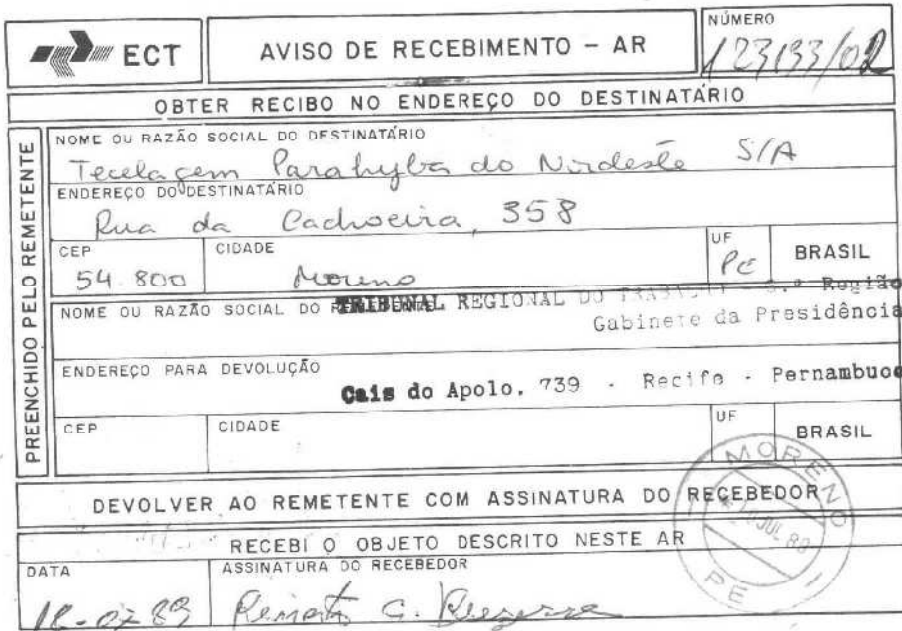 ECT
AVISO DE RECEBIMENTO – AR
NÚMERO
123133/02
OBTER RECIBO NO ENDEREÇO DO DESTINATÁRIO
PREENCHIDO PELO REMETENTE
NOME OU RAZÃO SOCIAL DO DESTINATÁRIO
Tecelagem Parahyba do Nordeste S/A
ENDEREÇO DO DESTINATÁRIO
Rua da Cachoeira, 358
CEP CIDADE UF
54.800 Moreno PE BRASIL
NOME OU RAZÃO SOCIAL DO
TRIBUNAL REGIONAL DO TRABALHO - 6.ª Região
Gabinete da Presidência
ENDEREÇO PARA DEVOLUÇÃO
Cais do Apolo, 739 - Recife - Pernambuco
CEP CIDADE UF BRASIL
DEVOLVER AO REMETENTE COM ASSINATURA DO RECEBEDOR
MORENO
JUL 89
PE
RECEBI O OBJETO DESCRITO NESTE AR
DATA ASSINATURA DO RECEBEDOR
18-07-89 Renato G. Bezerra